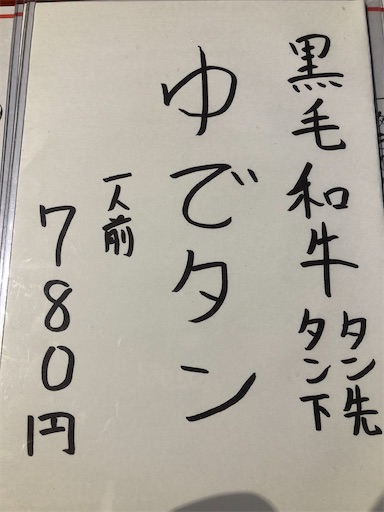 黒毛和牛
タン先
タン下
ゆでタン
一人前
780円